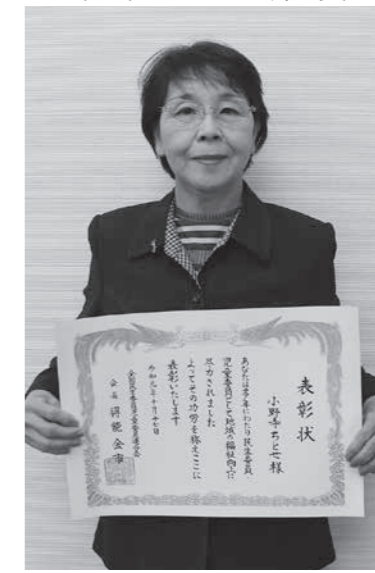 表彰状
小野寺ちとせ様
あなたは多年にわたり民生委員・
児童委員として地域の福祉向上に
尽力されました
よってその功労を称えここに
表彰いたします
令和元年十月十七日
全国民生委員児童委員連合会
会長 得能金市